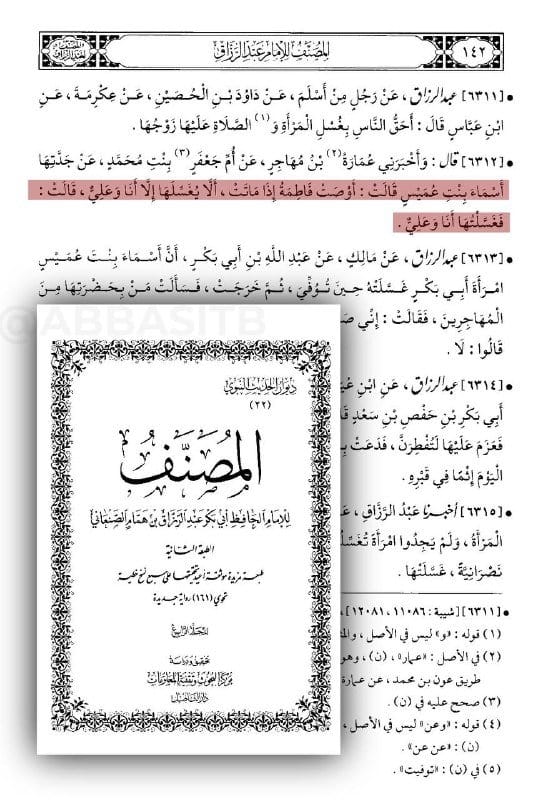 ١٤٢
المصنف للإمام عبد الرزاق
• [٦٣١١] عبد الرزاق ، عَنْ رَجُلٍ مِنْ أَسْلَمَ ، عَنْ دَاوُدَ بْنِ الْحُصَيْنِ ، عَنْ عِكْرِمَةَ ، عَنِ
ابْنِ عَبَّاسٍ قَالَ : أَحَقُّ النَّاسِ بِغُسْلِ الْمَرْأَةِ وَ(١) الصَّلَاةِ عَلَيْهَا زَوْجُهَا .
• [٦٣١٢] قال : وَأَخْبَرَنِي عُمَارَةُ(٢) بْنُ مُهَاجِرٍ ، عَنْ أُمِّ جَعْفَرٍ(٣) بِنْتِ مُحَمَّدٍ ، عَنْ جَدَّتِهَا
أَسْمَاءَ بِنْتِ عُمَيْسٍ قَالَتْ : أَوْصَتْ فَاطِمَةُ إِذَا مَاتَتْ ، أَلَّا يَغْسِلَهَا إِلَّا أَنَا وَعَلِيٌّ ، قَالَتْ :
فَغَسَلْتُهَا أَنَا وَعَلِيٌّ .
• [٦٣١٣] عبد الرزاق ، عَنْ مَالِكٍ ، عَنْ عَبْدِ اللَّهِ بْنِ أَبِي بَكْرٍ ، أَنَّ أَسْمَاءَ بِنْتَ عُمَيْسٍ
امْرَأَةَ أَبِي بَكْرٍ غَسَّلَتْهُ حِينَ تُوُفِّيَ ، ثُمَّ خَرَجَتْ ، فَسَأَلَتْ مَنْ بِحَضْرَتِهَا مِنَ
الْمُهَاجِرِينَ ، فَقَالَتْ : إِنِّي
قَالُوا : لَا .
• [٦٣١٤] عبد الرزاق ، عَنِ ابْنِ
أَبِي بَكْرِ بْنِ حَفْصِ بْنِ سَعْدٍ
فَعَزَمَ عَلَيْهَا لَتُفْطِرَنَّ ، فَدَعَتْ
الْيَوْمَ إِثْمًا فِي قَبْرِهِ .
• [٦٣١٥] أخبرنا عَبْدُ الرَّزَّاقِ ،
الْمَرْأَةُ ، وَلَمْ يَجِدُوا امْرَأَةً
نَصْرَانِيَّةً ، غَسَّلَتْهَا .
• [٦٣١١] [شيبة : ١١٠٨٦ ، ١٢٠٨١] ،
(١) قوله : «و» ليس في الأصل ،
(٢) في الأصل : «عمار» ، (ن) ، وهو
طريق عون بن محمد ، عن عمارة
(٣) صحح عليه في (ن) .
(٤) قوله : «وعن» ليس في الأصل ،
(ن) : «عن عن» .
(٥) في (ن) : «توفيت» .
@ABBASITB
ديوان الحديث النبوي
(٣٢)
المُصَنَّفُ
للإمام الحافظ أبي بكر عبد الرزاق بن همام الصنعاني
الطبعة الثانية
طبعة مزيدة وموثقة أعيد تحقيقها على سبع نسخ خطية
تحوي (١٦١) رواية جديدة
المجلد الرابع
تحقيق ودراسة
مركز البحوث وتقنية المعلومات
دار التأصيل